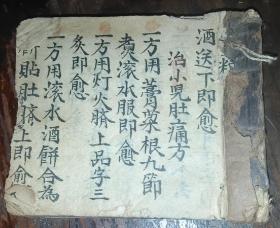 酒送下即愈
治小児肚痛方
一方用蒿菜根九節
煑滚水服即愈
一方用灯火臍上品字三
灸即愈
一方用滚水酒餅合為
貼肚臍上即愈